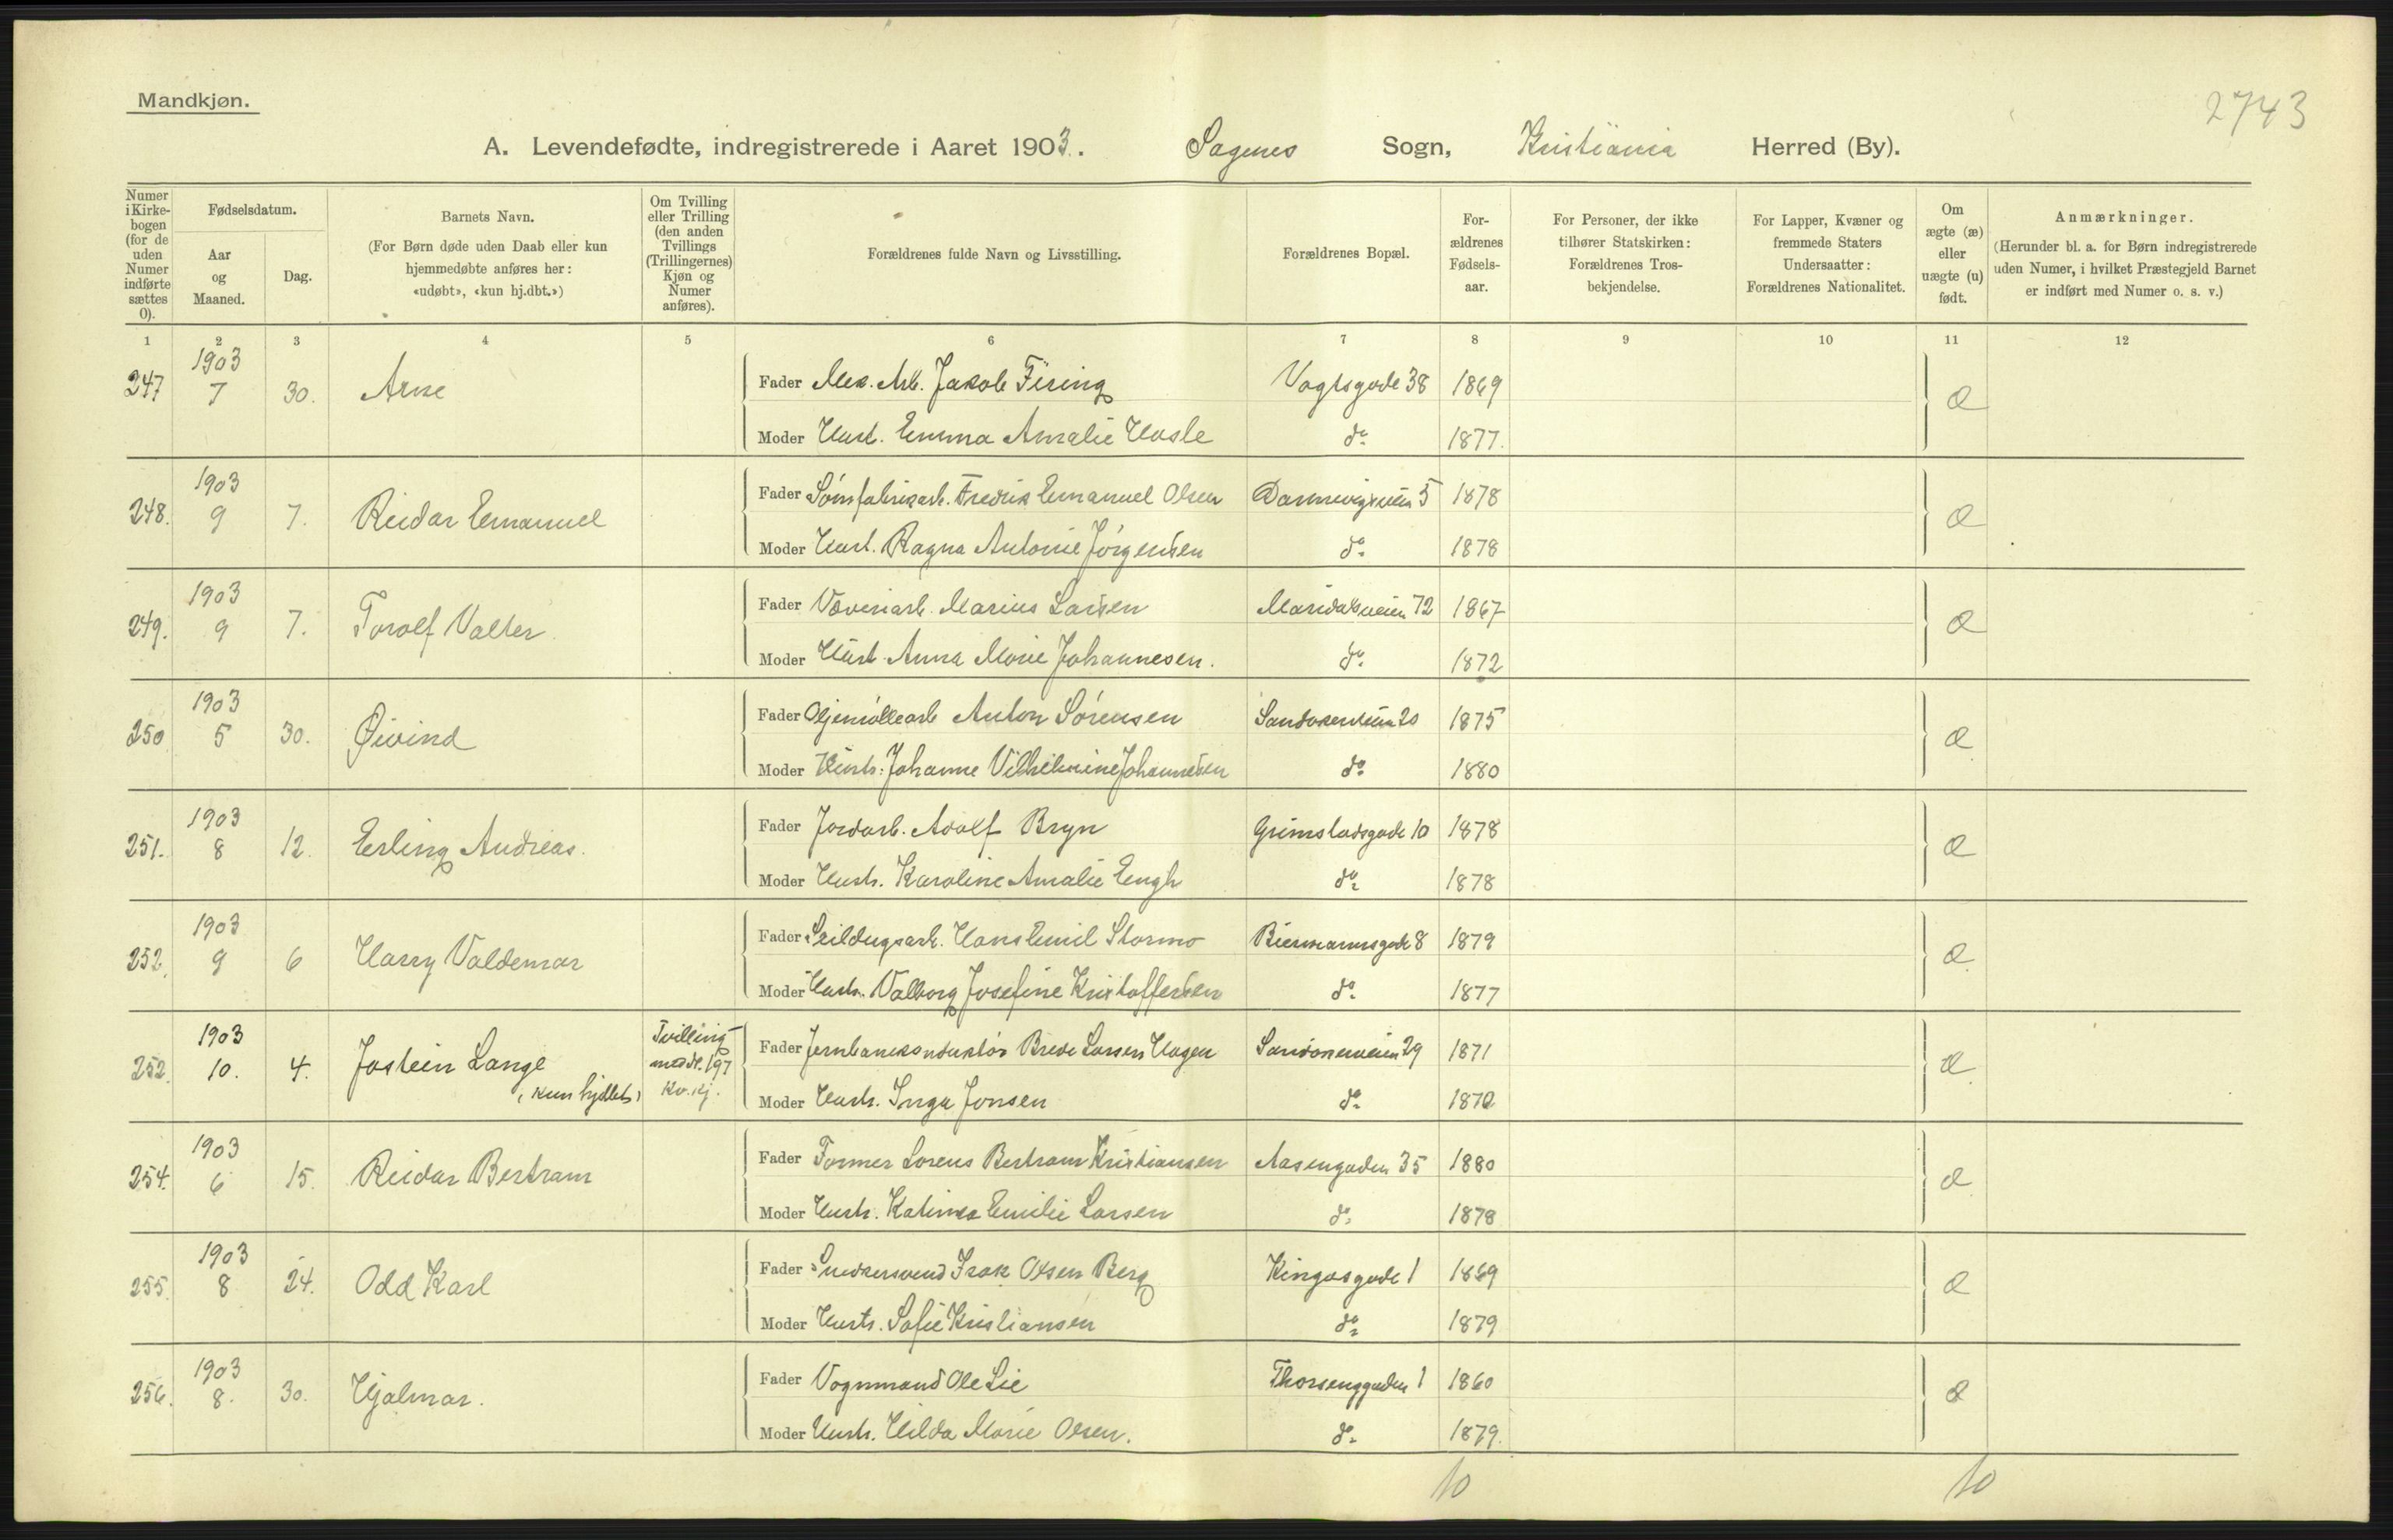 Mandkjøn.
2743
A. Levendefødte, indregistrerede i Aaret 1903. Sagenes Sogn, Kristiania Herred (By).
Numer i Kirkebogen (for de uden Numer indførte sættes 0).
Fødselsdatum.
Aar og Maaned.
Dag.
Barnets Navn.
(For Børn døde uden Daab eller kun hjemmedøbte anføres her: «udøbt», «kun hj.dbt.»)
Om Tvilling eller Trilling (den anden Tvillings (Trillingernes) Kjøn og Numer anføres).
Forældrenes fulde Navn og Livsstilling.
Forældrenes Bopæl.
Forældrenes Fødselsaar.
For Personer, der ikke tilhører Statskirken: Forældrenes Trosbekjendelse.
For Lapper, Kvæner og fremmede Staters Undersaatter: Forældrenes Nationalitet.
Om ægte (æ) eller uægte (u) født.
Anmærkninger.
(Herunder bl. a. for Børn indregistrerede uden Numer, i hvilket Præstegjeld Barnet er indført med Numer o. s. v.)
1 2 3 4 5 6 7 8 9 10 11 12
247 1903 7 30. Arne Fader Mek. Arb. Jakob Fising Vogtsgade 38 1869 æ
Moder Hust. Emma Amalie Hasle do 1877.
248. 1903 9 7. Reidar Emanuel Fader Sömfabrikarb. Fredrik Emanuel Olsen 5 1878 æ
Moder Hust. Ragna Antonie Jörgensen do 1878
249. 1903 9 7. Torolf Valter Fader Væveriarb. Marius Larsen Maridalsveien 72 1867 æ
Moder Hust. Anna Marie Johannesen. do 1872
250 1903 5 30. Øivind Fader Oljemöllearb Anton Sörensen Sandakerveien 20 1875 æ
Moder Hustr. Johanne Vilhelmine Johannesen do 1880
251. 1903 8 12. Erling Andreas. Fader Jordarb. Adolf Bryn Grimstadsgade 10 1878 æ
Moder Hustr. Karoline Amalie Engh do 1878
252. 1903 9 6 Harry Valdemar Fader Seildugsarb. Hans Emil Stormo Biermannsgade 8 1879 æ
Moder Hustr. Valborg Josefine Kristoffersen do 1877
252. 1903 10. 4. Jostein Lange (kun hjdbt) Tvilling med Nr. 197 Kv. kj. Fader Jernbanekonduktör Brede Larsen Hagen Sandakerveien 29 1871 æ
Moder Hustr. Inga Jonsen do 1872
254. 1903 6 15. Reidar Bertram Fader Former Lorens Bertram Kristiansen Aasengaden 35 1880 æ
Moder Hustr. Katinka Emilie Larsen do 1878
255. 1903 8 24. Odd Karl Fader Snedkersvend Isak Olsen Berg Kingosgade 1 1869 æ
Moder Hustr. Sofie Kristiansen do 1879
256. 1903 8. 30. Hjalmar. Fader Vognmand Ole Lie Thorsenggaden 1 1860 æ
Moder Hustr. Hilda Marie Olsen. do 1879.
10 10